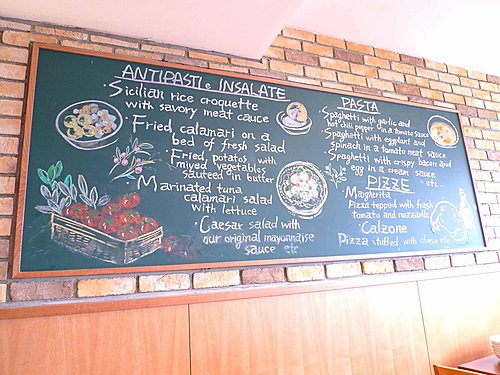 ANTIPASTI e INSALATE
· Sicilian rice croquette
with savory meat cauce
· Fried calamari on a
bed of fresh salad
· Fried potatos with
mixed vegetables
sauteed in butter
· Marinated tuna
calamari salad
with lettuce
· Caesar salad with
our original mayonnaise
sauce etc
PASTA
· Spaghetti with garlic and
hot chili pepper in a tomato sauce
· Spaghetti with eggplant and
spinach in a tomato meat sauce
· Spaghetti with crispy bacon and
egg in a cream sauce
etc
PIZZE
· Margherita
Pizza topped with fresh
tomato and mozzarella
· Calzone
Pizza stuffed with cheese etc